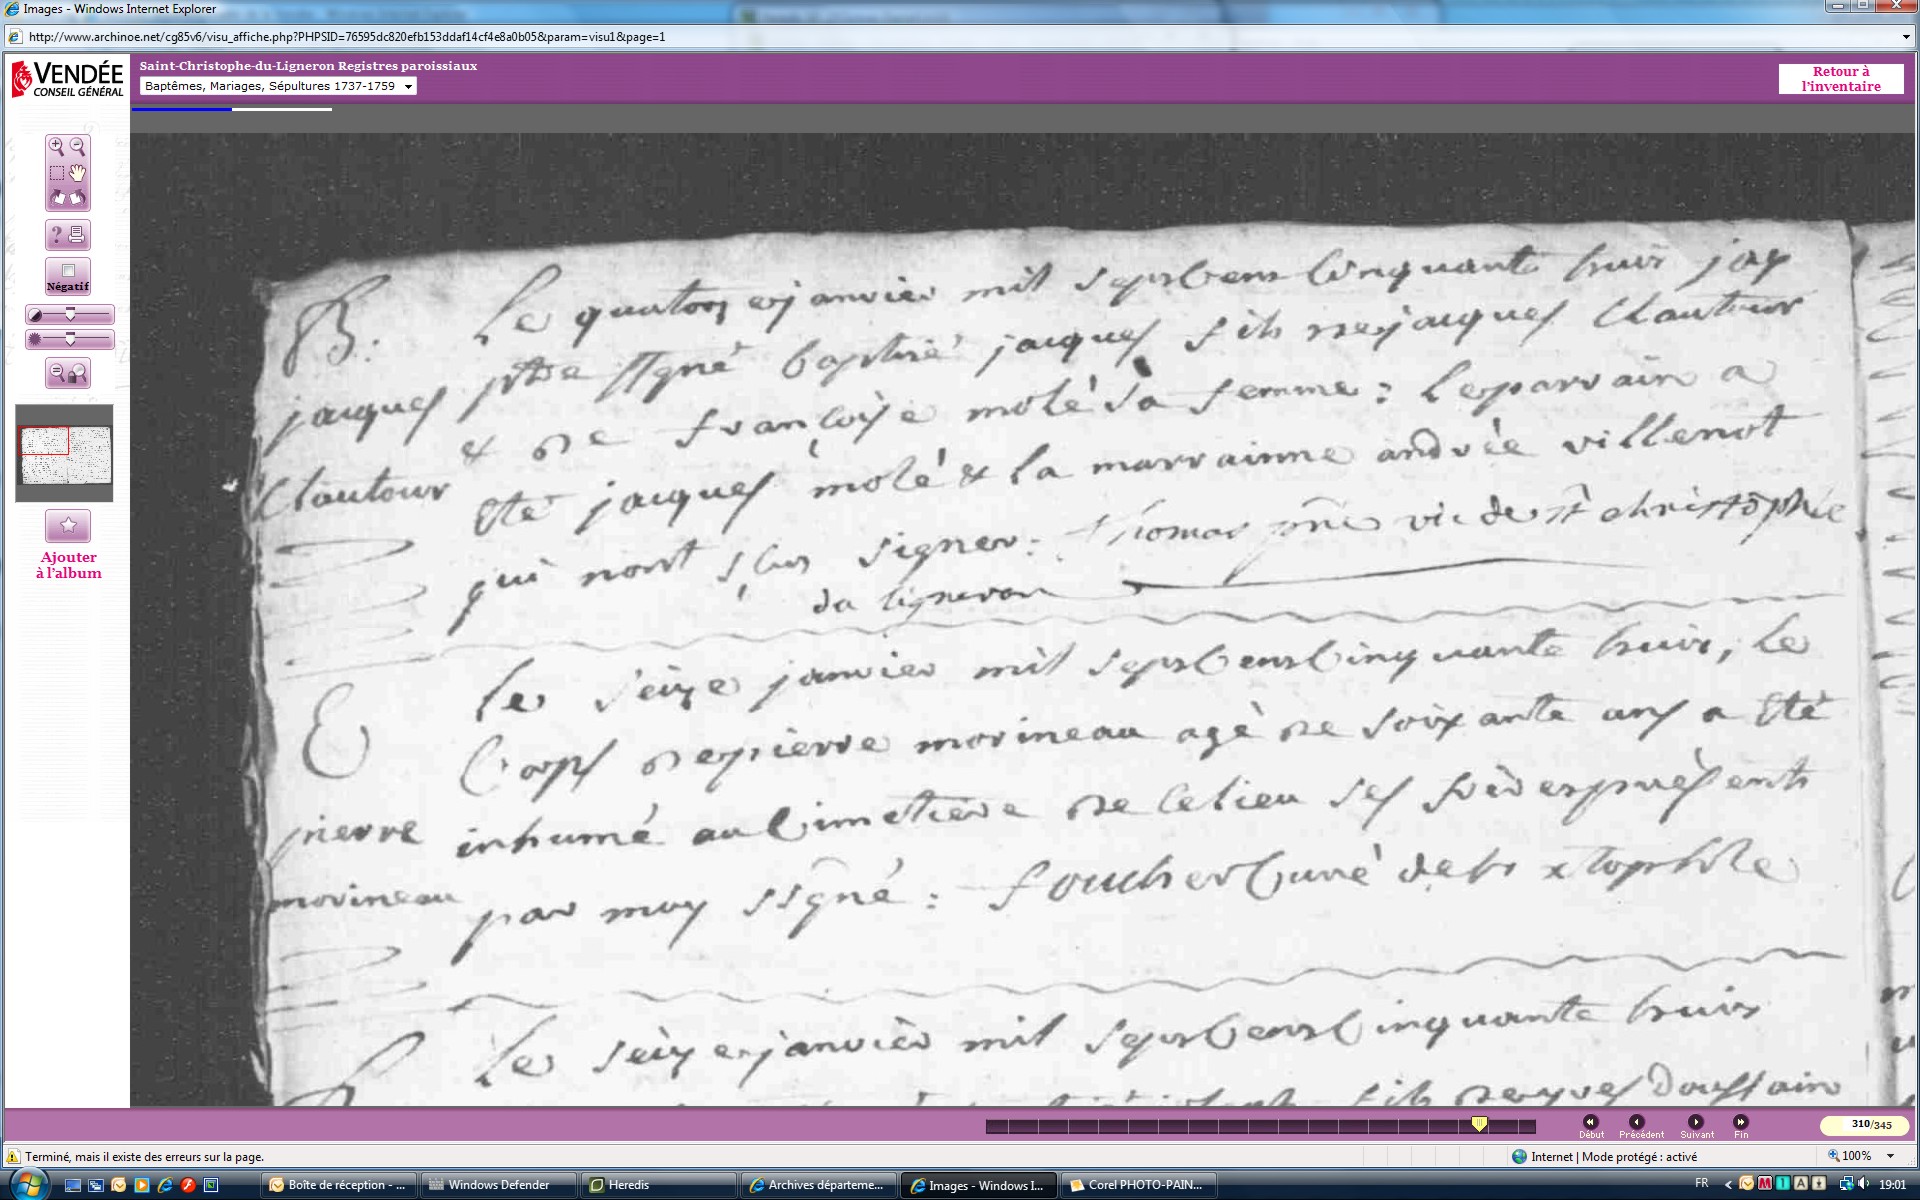 Images - Windows Internet Explorer
http://www.archinoe.net/cg85v6/visu_affiche.php?PHPSID=76595dc820efb153ddaf14cf4e8a0b05&param=visu1&page=1
VENDÉE
CONSEIL GÉNÉRAL
Saint-Christophe-du-Ligneron Registres paroissiaux
Baptêmes, Mariages, Sépultures 1737-1759
Retour à
l'inventaire
Négatif
Ajouter
à l'album
B.
jacques
Clautour
Le quatorze janvier mil sept cens cinquante huit jay
ptre ssgné baptisé jacques fils de jacques Clautour
& de françoise molé sa femme : le parrain a
été jacques molé & la marrainne andrée villenot
qui nont sçus signer : thomas ptre vic de st christophe
du ligneron
E
pierre
morineau
le seize janvier mil sept cens cinquante huit, le
corps de pierre morineau agé de soixante ans a été
inhumé au cimetiere de ce lieu ses freres présents
par moy ssgné : foucher curé de st xtophle
Le seize janvier mil sept cens cinquante huit
fils de yves doussain
Début
Précédent
Suivant
Fin
310/345
Terminé, mais il existe des erreurs sur la page.
Internet | Mode protégé : activé
100%
Boîte de réception - ...
Windows Defender
Heredis
Archives départeme...
Images - Windows I...
Corel PHOTO-PAIN...
FR
19:01